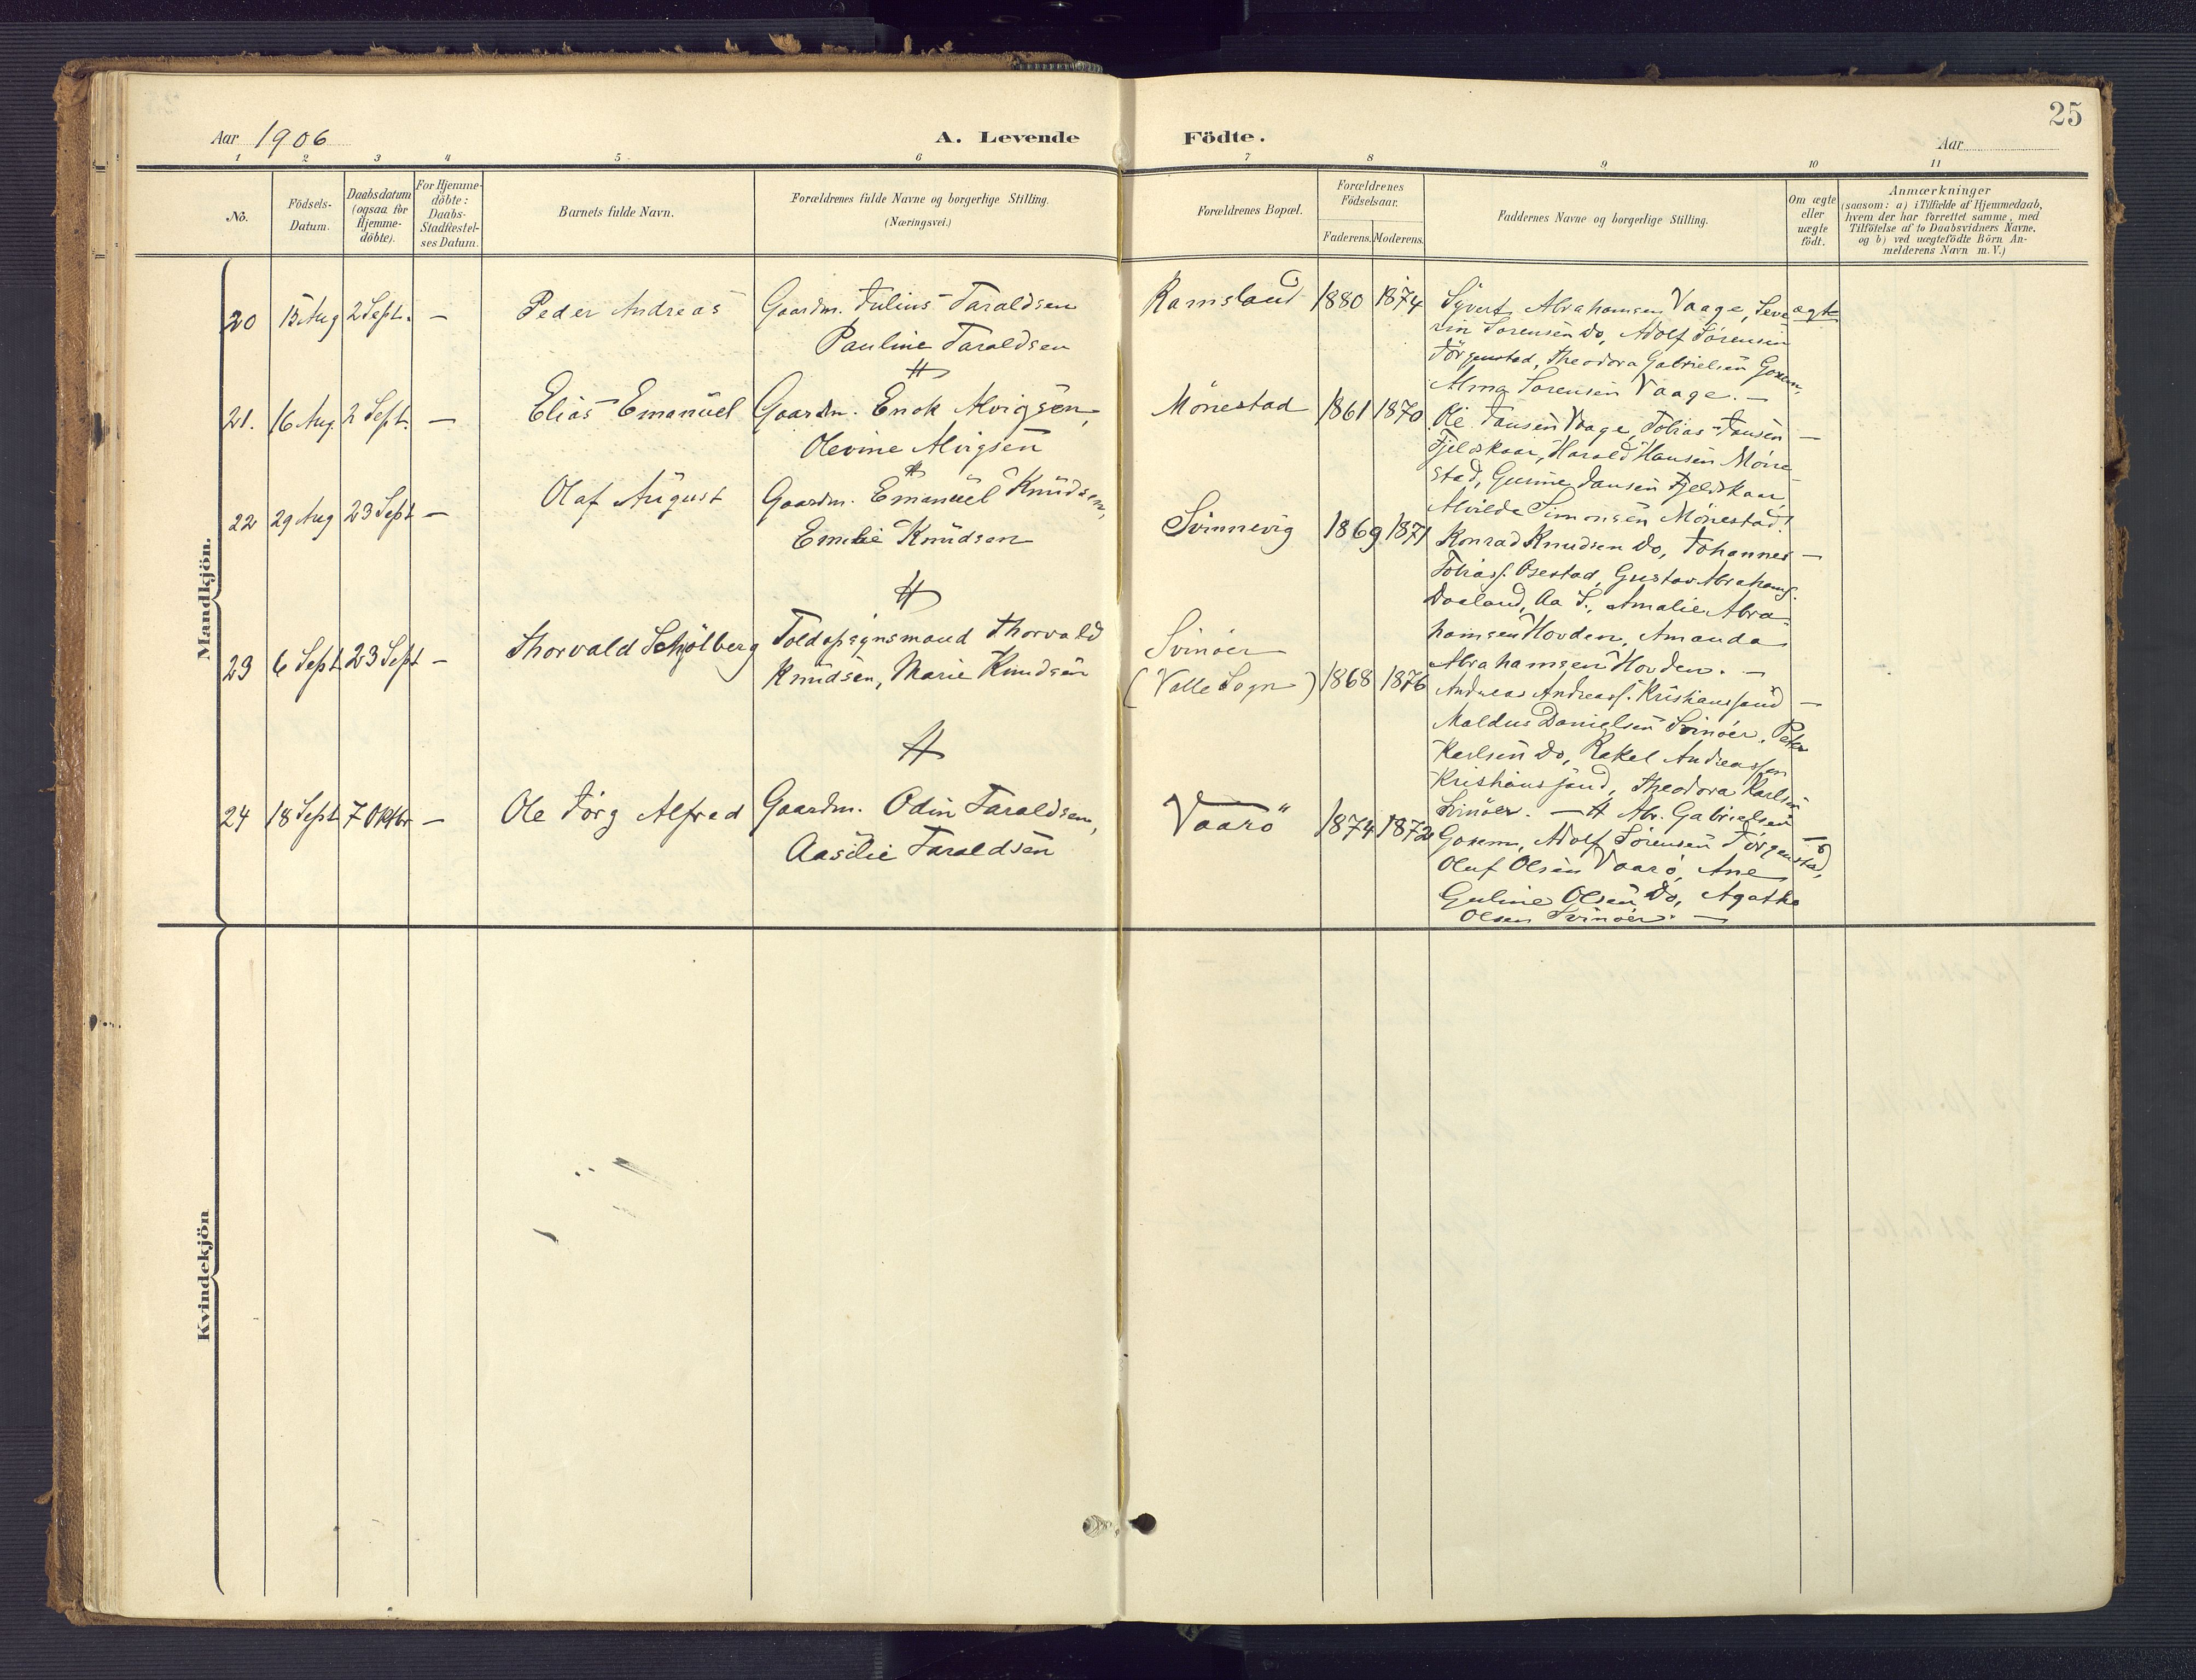 25
Aar 1906
A. Levende Födte.
Aar
1 2 3 4 5 6 7 8 9 10 11
No.
Födsels-Datum.
Daabsdatum (ogsaa for Hjemme-döbte).
For Hjemme-döbte: Daabs-Stadfæstel-ses Datum.
Barnets fulde Navn.
Forældrenes fulde Navne og borgerlige Stilling.
(Næringsvei.)
Forældrenes Bopæl.
Forældrenes Födselsaar.
Faderens. Moderens.
Faddernes Navne og borgerlige Stilling.
Om ægte eller uægte födt.
Anmærkninger
(saasom: a) i Tilfælde af Hjemmedaab,
hvem der har forrettet samme, med
Tilföielse af to Daabsvidners Navne,
og b) ved uægtefödte Börn An-
melderens Navn m. V.)
Mandkjön.
20 15 Aug 2 Sept. — Peder Andreas Gaardm. Julius Taraldsen
Pauline Taraldsen
Ramsland 1880 1874
Syvert Abrahamsen Vaage, Seve ægte
rin Sørensen Do, Adolf Sørensen
Jörgenstad, Theodora Gabrielsen Gosem,
Alma Sørensen Vaage. —
21. 16 Aug. 2 Sept. — Elias Emanuel Gaardm. Enok Alvigsen,
Olevine Alvigsen
Mönestad 1861 1870
Ole Jansen Vaage, Tobias Jansen —
Fjeldskaar, Harald Hansen Möne
stad, Gurine Jansen Fjeldskaar
Alvilde Simonsen Mönestad.
22 29 Aug 23 Sept — Olaf August Gaardm. Emanuel Knudsen,
Emelie Knudsen
Svinnevig 1869 1871
Konrad Knudsen Do, Johannes —
Tobiass. Osestad, Gustav Abrahams.
Daaland, Aa S., Amalie Abra
hamsen Hovden, Amanda
Abrahamsen Hovden. —
23 6 Sept 23 Sept — Thorvald Schjölberg Toldopsynsmand Thorvald
Knudsen, Marie Knudsen
Svinöer
(Valle Sogn) 1868 1876
Andreas Andreass. Kristiansand —
Maldus Danielsen Svinöer, Peter
Karlsen Do, Rakel Andreassen
Kristiansand, Theodora Karlsen
Svinöer. —
24 18 Sept 7 Oktbr — Ole Jörg Alfred Gaardm. Odin Taraldsen,
Aasilie Taraldsen
Vaarö 1874 1872
Abr. Gabrielsen
Gosem, Adolf Sörensen Jörgenstad,
Oluf Olsen Vaarö, Ane
Guline Olsen Do, Agathe
Olsen Svinöer. —
Kvindekjön